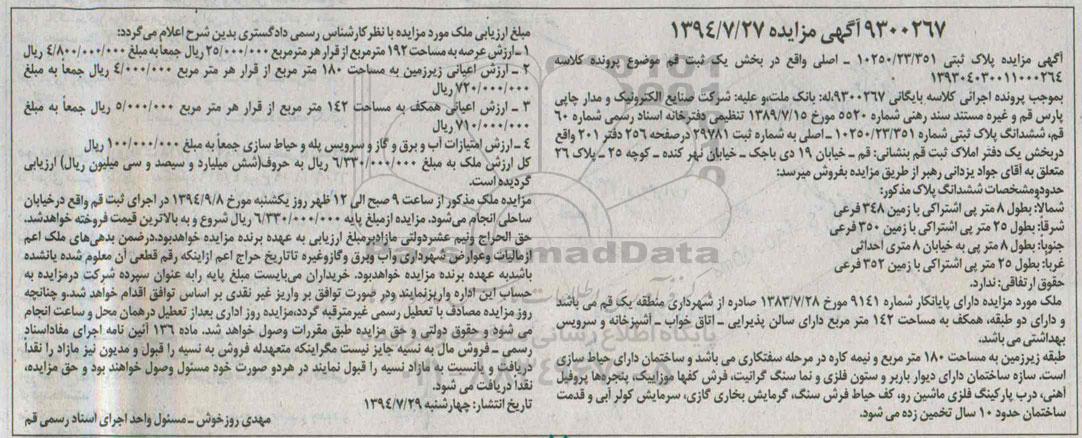 ۹۳۰۰۲۶۷ آگهی مزایده ۱۳۹۴/۷/۲۷
آگهی مزایده پلاک ثبتی ۱۰۲۵۰/۲۳/۳۵۱ ـ اصلی واقع در بخش یک ثبت قم موضوع پرونده کلاسه
۱۳۹۳۰۴۰۳۰۰۱۱۰۰۰۲۶۴
بموجب پرونده اجرائی کلاسه بایگانی ۹۳۰۰۲۶۷،له: بانک ملت،و علیه: شرکت صنایع الکترونیک و مدار چاپی
پارس قم و غیره مستند سند رهنی شماره ۵۵۲۰ مورخ ۱۳۸۹/۷/۱۵ تنظیمی دفترخانه اسناد رسمی شماره ۶۰
قم، ششدانگ پلاک ثبتی شماره ۱۰۲۵۰/۲۳/۳۵۱ ـ اصلی به شماره ثبت ۲۹۷۸۱ درصفحه ۲۵۶ دفتر ۲۰۱ واقع
دربخش یک دفتر املاک ثبت قم بنشانی: قم ـ خیابان ۱۹ دی باجک ـ خیابان نهر کنده ـ کوچه ۲۵ ـ پلاک ۲۶
متعلق به آقای جواد یزدانی رهبر از طریق مزایده بفروش میرسد:
حدودومشخصات ششدانگ پلاک مذکور:
شمالا: بطول ۸ متر پی اشتراکی با زمین ۳۴۸ فرعی
شرقا: بطول ۲۵ متر پی اشتراکی با زمین ۳۵۰ فرعی
جنوبا: بطول ۸ متر پی به خیابان ۸ متری احداثی
غربا: بطول ۲۵ متر پی اشتراکی با زمین ۳۵۲ فرعی
حقوق ارتفاقی: ندارد.
ملک مورد مزایده دارای پایانکار شماره ۹۱۴۱ مورخ ۱۳۸۳/۷/۲۸ صادره از شهرداری منطقه یک قم می باشد
و دارای دو طبقه، همکف به مساحت ۱۴۲ متر مربع دارای سالن پذیرایی ـ اتاق خواب ـ آشپزخانه و سرویس
بهداشتی می باشد.
طبقه زیرزمین به مساحت ۱۸۰ متر مربع و نیمه کاره در مرحله سفتکاری می باشد و ساختمان دارای حیاط سازی
است. سازه ساختمان دارای دیوار باربر و ستون فلزی و نما سنگ گرانیت، فرش کفها موزاییک، پنجره‌ها پروفیل
آهنی، درب پارکینگ فلزی ماشین رو، کف حیاط فرش سنگ، گرمایش بخاری گازی، سرمایش کولر آبی و قدمت
ساختمان حدود ۱۰ سال تخمین زده می شود.
مبلغ ارزیابی ملک مورد مزایده با نظر کارشناس رسمی دادگستری بدین شرح اعلام می‌گردد:
۱ ـ ارزش عرصه به مساحت ۱۹۲ مترمربع از قرار هر مترمربع ۲۵/۰۰۰/۰۰۰ ریال جمعاً به مبلغ ۴/۸۰۰/۰۰۰/۰۰۰ ریال
۲ ـ ارزش اعیانی زیرزمین به مساحت ۱۸۰ متر مربع از قرار هر متر مربع ۴/۰۰۰/۰۰۰ ریال جمعاً به مبلغ
۷۲۰/۰۰۰/۰۰۰ ریال
۳ ـ ارزش اعیانی همکف به مساحت ۱۴۲ متر مربع از قرار هر متر مربع ۵/۰۰۰/۰۰۰ ریال جمعاً به مبلغ
۷۱۰/۰۰۰/۰۰۰ ریال
۴ ـ ارزش امتیازات آب و برق و گاز و سرویس پله و حیاط سازی جمعاً به مبلغ ۱۰۰/۰۰۰/۰۰۰ ریال
کل ارزش ملک به مبلغ ۶/۳۳۰/۰۰۰/۰۰۰ ریال به حروف(شش میلیارد و سیصد و سی میلیون ریال) ارزیابی
گردیده است.
مزایده ملک مذکور از ساعت ۹ صبح الی ۱۲ ظهر روز یکشنبه مورخ ۱۳۹۴/۹/۸ در اجرای ثبت قم واقع درخیابان
ساحلی انجام می‌شود. مزایده ازمبلغ پایه ۶/۳۳۰/۰۰۰/۰۰۰ ریال شروع و به بالاترین قیمت فروخته خواهدشد.
حق الحراج ونیم عشردولتی مازادبرمبلغ ارزیابی به عهده برنده مزایده خواهدبود.درضمن بدهی‌های ملک اعم
ازمالیات وعوارض شهرداری وآب وبرق وگازوغیره تاتاریخ حراج اعم ازاینکه رقم قطعی آن معلوم شده یانشده
باشدبه عهده برنده مزایده خواهدبود. خریداران می‌بایست مبلغ پایه رابه عنوان سپرده شرکت درمزایده به
حساب این اداره واریزنمایند ودر صورت توافق بر واریز غیر نقدی بر اساس توافق اقدام خواهد شد.و چنانچه
روز مزایده مصادف با تعطیل رسمی غیرمترقبه گردد،مزایده روز اداری بعداز تعطیل درهمان محل و ساعت انجام
می شود و حقوق دولتی و حق مزایده طبق مقررات وصول خواهد شد. ماده ۱۳۶ آئین نامه اجرای مفاداسناد
رسمی ـ فروش مال به نسیه جایز نیست مگراینکه متعهدله فروش به نسیه را قبول و مدیون نیز مازاد را نقداً
دریافت و یانسبت به مازاد نسیه را قبول نمایند در هردو صورت خود مسئول وصول خواهند بود و حق مزایده،
نقداً دریافت می شود.
تاریخ انتشار: چهارشنبه ۱۳۹۴/۷/۲۹
مهدی روزخوش ـ مسئول واحد اجرای اسناد رسمی قم